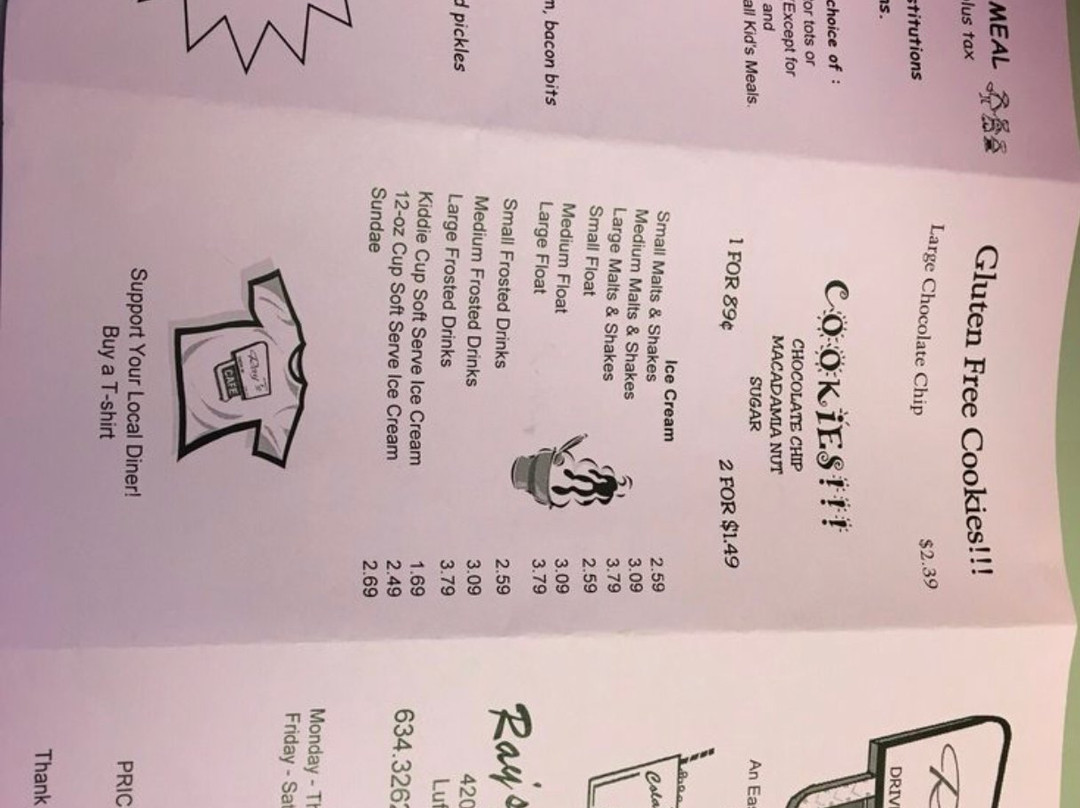 MEAL
lus tax
stitutions
ns.
choice of :
or tots or
Except for
and
all Kid's Meals.
n, bacon bits
d pickles
Gluten Free Cookies!!!
Large Chocolate Chip $2.39
COOKiES!!!
CHOCOLATE CHIP
MACADAMIA NUT
SUGAR
1 FOR 89¢ 2 FOR $1.49
Ice Cream
Small Malts & Shakes 2.59
Medium Malts & Shakes 3.09
Large Malts & Shakes 3.79
Small Float 2.59
Medium Float 3.09
Large Float 3.79
Small Frosted Drinks 2.59
Medium Frosted Drinks 3.09
Large Frosted Drinks 3.79
Kiddie Cup Soft Serve Ice Cream 1.69
12-oz Cup Soft Serve Ice Cream 2.49
Sundae 2.69
Ray's
CAFE
Support Your Local Diner!
Buy a T-shirt
R
DRIV
An Eas
Ray's
420
Luf
634.3262
Monday - Th
Friday - Sat
PRIC
Thank